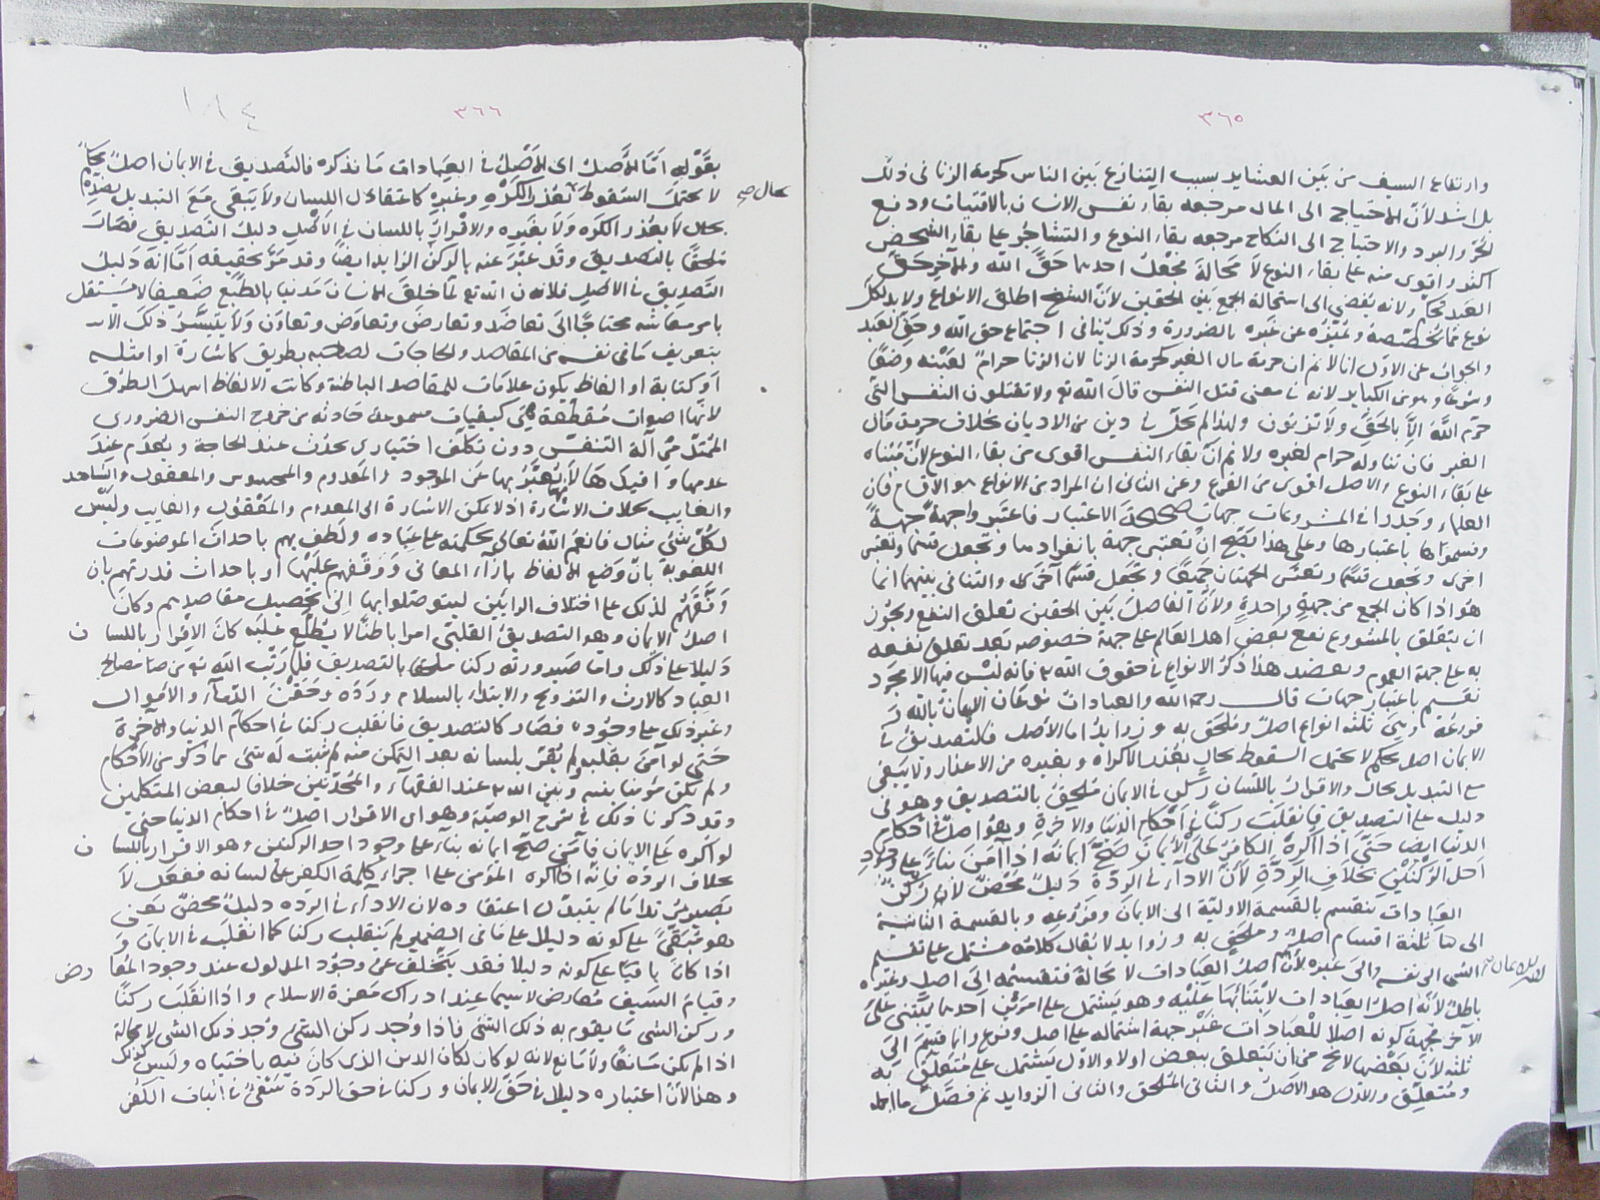 ٣٦٥
وارتفاع السيف من بين العشاير بسبب التنازع بين الناس كحرمة الزنا في ذلك
بل اشد لأن الاحتياج الى المال مرجعه بقاء نفس الانسان بالاقتيات ودفع
الحرّ والبرد والاحتياج الى النكاح مرجعه بقاء النوع والتشاجر على بقاء الشخص
اكثر واقوى منه على بقاء النوع لا محالة فجعل احدهما حق الله والآخر حق
العبد تحكم ولانه يفضي الى استحالة الجمع بين الحقين لأن الشيء اطلق الانواع ولا بد لكل
نوع مما يخصصه ويميزه عن غيره بالضرورة وذلك ينافي اجتماع حق الله وحق العبد
والجواب عن الاول انا لا نم ان حرمة مال الغير كحرمة الزنا لان الزنا حرام لعينه وضعًا
وشرعًا وهو من الكبائر لانه في معنى قتل النفس قال الله تع ولا تقتلون النفس التي
حرم الله إلا بالحق ولا تزنون ولهذا لم يحل في دين من الاديان بخلاف حرمة مال
الغير فان تناوله حرام لغيره ولا نم انّ بقاء النفس اقوى من بقاء النوع لأن مبناه
على بقاء النوع والاصل اقوى من الفرع وعن الثاني ان المراد من الانواع هو الاقسام فان
العلماء وجدوا في المشروعات جهات صحيحة الاعتبار فاعتبروا جهةً جهةً
وقسموها باعتبارها وعلى هذا يصح ان تعتبر جهة بانفرادها وتجعل قسما وتعتبر
اخرى وتجعل قسما وتعتبر الجهتان جميعًا وتجعل قسما آخر والتنافي بينهما انما
هو اذا كان الجمع من جهة واحدة ولأن الفاصل بين الحقين تعلق النفع ويجوز
ان يتعلق بالمشروع نفع بعض اهل العالم على جهة خصوصه بعد تعلق نفعه
به على جهة العموم ويعضد هذا ذكر الانواع في حقوق الله تع فانه ليس فيها الا مجرد
تقسيم باعتبار جهات قال رحمه الله والعبادات نوعان الايمان بالله تع و
فروعه وهي ثلثة انواع اصل وملحق به وزوايد اما الأصل فالتصديق في
الايمان اصل محكم لا يحتمل السقوط بحال بعذر الاكراه وبغيره من الاعذار ولا يبقى
مع التبديل بحال والاقرار باللسان ركن في الايمان ملحق بالتصديق وهو في
دليل على التصديق فانقلب ركنًا في احكام الدنيا والآخرة وهو اصل في احكام
الدنيا ايضا حتى اذا اكره الكافر على الايمان صح ايمانه اذا آمن بناءً على وجود
احد الركنين بخلاف الردة لأن الآداء في الردة دليل محض لا ركن
العبادات ينقسم بالقسمة الاولية الى الايمان وفروعه وبالقسمة الثانية
الى ها ثلثة اقسام اصل وملحق به وزوايد لا يقال كلامه مشتمل على تقسيم
الشيء الى نفسه والى غيره لأن اصل العبادات لا محالة فتقسيمه الى اصل وغيره
باطل لأنه اصل العبادات لابتنائها عليه وهو يشتمل على امرين احدهما يبتني على
الآخر فجهة كونه اصلا للعبادات غير جهة اشتماله على اصل وفرع وانما قسم الى
ثلثة لأن بعضها لا يخ من ان يتعلق ببعض اولا والاول يشتمل على متعلق به
ومتعلق والاول هو الاصل والثاني الملحق والثاني الزوايد ثم فصل ما اجمله
٣٦٦
١٨٤
بقوله امّا الأصل اى الأصل في العبادات ما نذكره فالتصديق في الايمان اصل محكم
لا يحتمل السقوط بعذر الكره وغيره كاعتقال اللسان ولا يبقى مع التبديل بضده
بحال صح
بحال لا بعذر الكره ولا بغيره والاقرار باللسان في الأصل دليل التصديق فصار
ملحقًا بالتصديق وقد عبّر عنه بالركن الزايد ايضًا وقد مرّ تحقيقه اما انه دليل
التصديق في الاصل فلأن الله تع لما خلق الانسان مدنيا بالطبع ضعيفا لا يستقل
بامر معاشه محتاجًا الى تعاضد وتعارض وتعاوض وتعاون ولا يتيسر ذلك الا
بتعريف ما في نفسه من المقاصد والحاجات لصاحبه بطريق كاشارة او امثلة
او كتابة او الفاظ يكون علامات للمقاصد الباطنة وكانت الالفاظ اسهل الطرق
لانها اصوات مقطعة هي كيفيات مسموعة حادثة من خروج النفس الضروري
الممتد من آلة التنفس دون تكلف اختياري يحدث عند الحاجة ويعدم عند
عدمها وافيدها لأنه يعبر بها عن الموجود والمعدوم والمحسوس والمعقول والشاهد
والغايب بخلاف الاشارة اذ لا يمكن الاشارة الى المعدوم والمعقول والغايب وليس
لكل شيء مثال فانعم الله تعالى بحكمته على عباده ولطف بهم باحداث الموضوعات
اللغوية بان وضع الالفاظ بازآء المعاني ووقفهم عليها او باحداث قدرتهم بان
وفقهم لذلك على اختلاف الرايين ليتوصلوا بها الى تحصيل مقاصدهم وكان
اصل الايمان وهو التصديق القلبي امرا باطنًا لا يطلع عليه كان الاقرار باللسان
دليلا على ذلك واما صيرورته ركنا ملحقا بالتصديق فلما رتب الله تع من مصالح
العباد كالارث والتزويج والابتداء بالسلام ورده وحقن الدمآء والاموال
وغير ذلك على وجوده فصار كالتصديق فانقلب ركنا في احكام الدنيا والآخرة
حتى لو آمن بقلبه ولم يقر بلسانه بعد التمكن منه لم يثبت له شيء مما ذكر من الأحكام
ولم يكن مؤمنا بينه وبين الله تع عند الفقهآء والمحدثين خلافا لبعض المتكلمين
وقد ذكرنا ذلك في شرح الوصية وهو اى الاقرار اصل في احكام الدنيا حتى
لو اكره على الايمان فآمن صح ايمانه بناء على وجود احد الركنين وهو الاقرار باللسان
بخلاف الردة فانه اذا اكره المؤمن على اجراء كلمة الكفر على لسانه ففعل لا
يصير مرتدا ما لم يتبدل اعتقاده لان الآداء في الردة دليل محض يعني
هو مبقى على كونه دليلا على ما في الضمير لم ينقلب ركنا كما انقلب في الايمان و
اذا كان باقيًا على كونه دليلا فقد يتخلف عن وجود المدلول عند وجود المعارض
وقيام السيف معارض لا سيما عند ادراك معزة الاسلام واذا انقلب ركنًا
وركن الشيء ما يقوم به ذلك الشيء فاذا وجد ركن الشيء وجد ذلك الشيء لا محالة
اذا لم يكن مانعًا ولا مانع لانه لو كان لكان الدين الذي كان فيه باختياره وليس كذلك
وهذا لأن اعتباره دليلا في حق الايمان وركنا في حق الردة سعى في اثبات الكفر